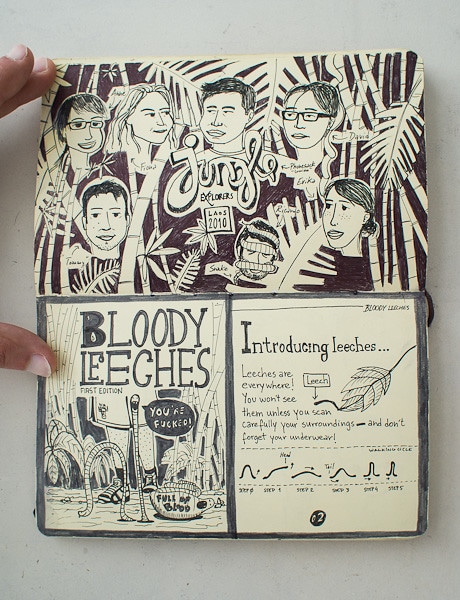 Anne
Franz
David
Erika
Jungle
EXPLORERS
LAOS
2010
Snake
BLOODY
LEECHES
FIRST EDITION
YOU'RE
FUCKED!
FULL OF
BLOOD
BLOODY LEECHES
Introducing leeches...
Leeches are
everywhere!
You won't see
them unless you scan
carefully your surroundings — and don't
forget your underwear!
Leech
WALKING CYCLE
Head
Tail
STEP 0 STEP 1 STEP 2 STEP 3 STEP 4 STEP 5
02